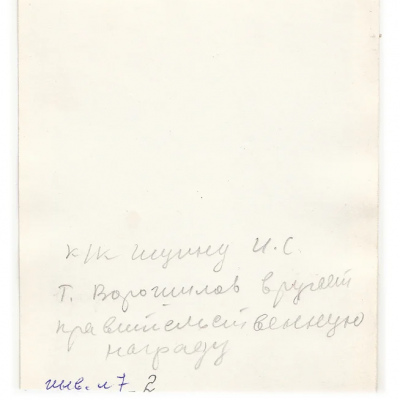 к/к Щину И.С.
Т. Ворошилов вручает
правительственную
награду
инв. л 7_2